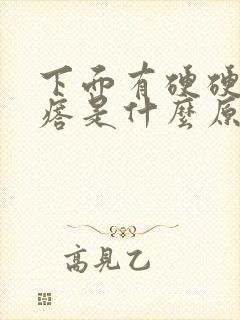 下面有硬硬
痞是什麼原
高見乙